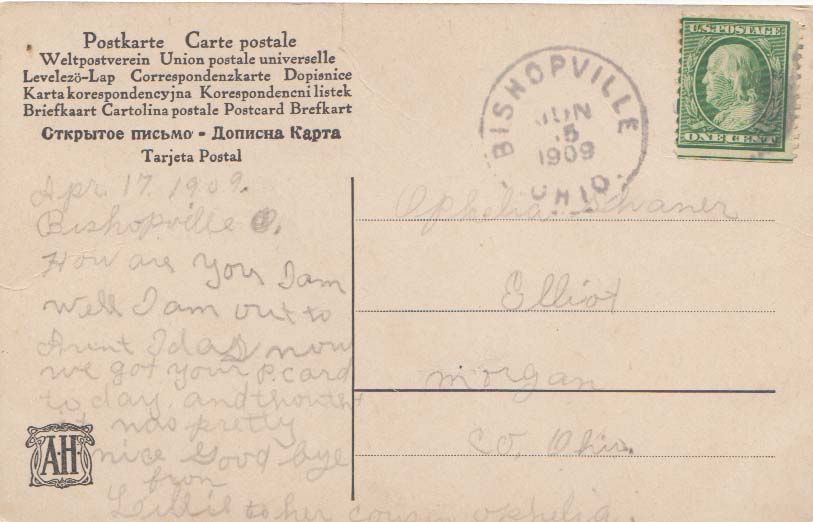 Postkarte Carte postale
Weltpostverein Union postale universelle
Levelezö-Lap Correspondenzkarte Dopisnice
Karta korespondencyjna Korespondencni listek
Briefkaart Cartolina postale Postcard Brefkart
Открытое письмо - Дописна Карта
Tarjeta Postal
BISHOPVILLE
JUN
5
1909
OHIO.
U.S. POSTAGE
ONE CENT
Apr. 17. 1909.
Bishopville O.
How are you I am
well I am out to
Aunt Idas now
we got your p. card
to day. and thought
it was pretty
nice Good bye
from
Lillie to her cousin ophelia.
A.H.
Ophelia Schaner
Elliot
morgan
co. Ohio.